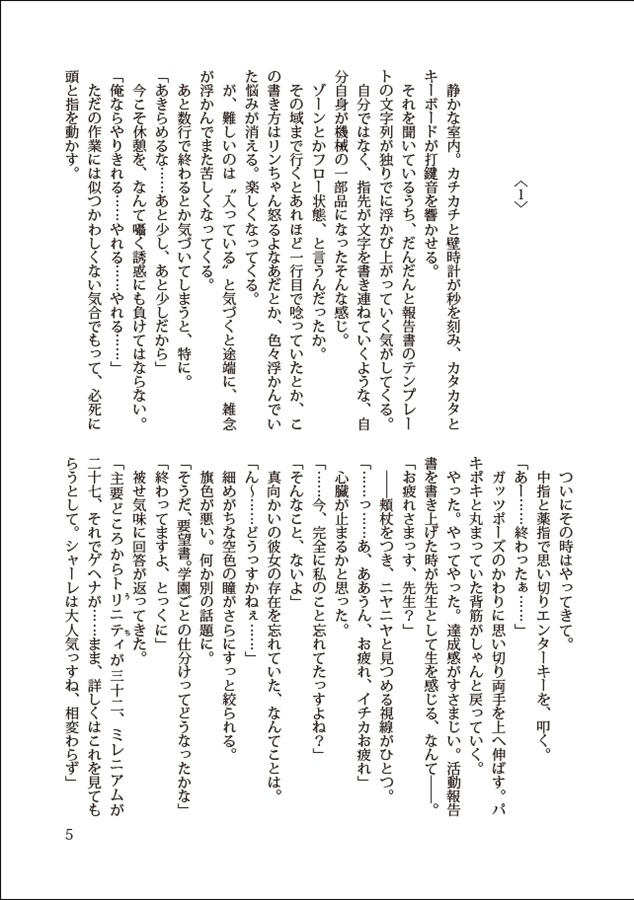 〈1〉
　静かな室内。カチカチと壁時計が秒を刻み、カタカタと
キーボードが打鍵音を響かせる。
　それを聞いているうち、だんだんと報告書のテンプレー
トの文字列が独りでに浮かび上がっていく気がしてくる。
　自分ではなく、指先が文字を書き連ねていくような、自
分自身が機械の一部品になったそんな感じ。
　ゾーンとかフロー状態、と言うんだったか。
　その域まで行くとあれほど一行目で唸っていたとか、こ
の書き方はリンちゃん怒るよなあだとか、色々浮かんでい
た悩みが消える。楽しくなってくる。
　が、難しいのは〝入っている〟と気づくと途端に、雑念
が浮かんでまた苦しくなってくる。
　あと数行で終わるとか気づいてしまうと、特に。
「あきらめるな……あと少し、あと少しだから」
　今こそ休憩を、なんて囁く誘惑にも負けてはならない。
「俺ならやりきれる……やれる……やれる……」
　ただの作業には似つかわしくない気合でもって、必死に
頭と指を動かす。
　ついにその時はやってきて。
　中指と薬指で思い切りエンターキーを、叩く。
「あー……終わったぁ……」
　ガッツポーズのかわりに思い切り両手を上へ伸ばす。パ
キポキと丸まっていた背筋がしゃんと戻っていく。
　やった。やってやった。達成感がすさまじい。活動報告
書を書き上げた時が先生として生を感じる、なんて――。
「お疲れさまっす、先生？」
　――頬杖をつき、ニヤニヤと見つめる視線がひとつ。
「……っ……あ、ああうん、お疲れ、イチカお疲れ」
　心臓が止まるかと思った。
「……今、完全に私のこと忘れてたっすよね？」
「そんなこと、ないよ」
　真向かいの彼女の存在を忘れていた、なんてことは。
「ん～……どうっすかねぇ……」
　細めがちな空色の瞳がさらにすっと絞られる。
　旗色が悪い。何か別の話題に。
「そうだ、要望書。学園ごとの仕分けってどうなったかな」
「終わってますよ、とっくに」
　被せ気味に回答が返ってきた。
「主要どころからトリニティうちが三十二、ミレニアムが
二十七、それでゲヘナが……まま、詳しくはこれを見ても
らうとして。シャーレは大人気っすね、相変わらず」
5